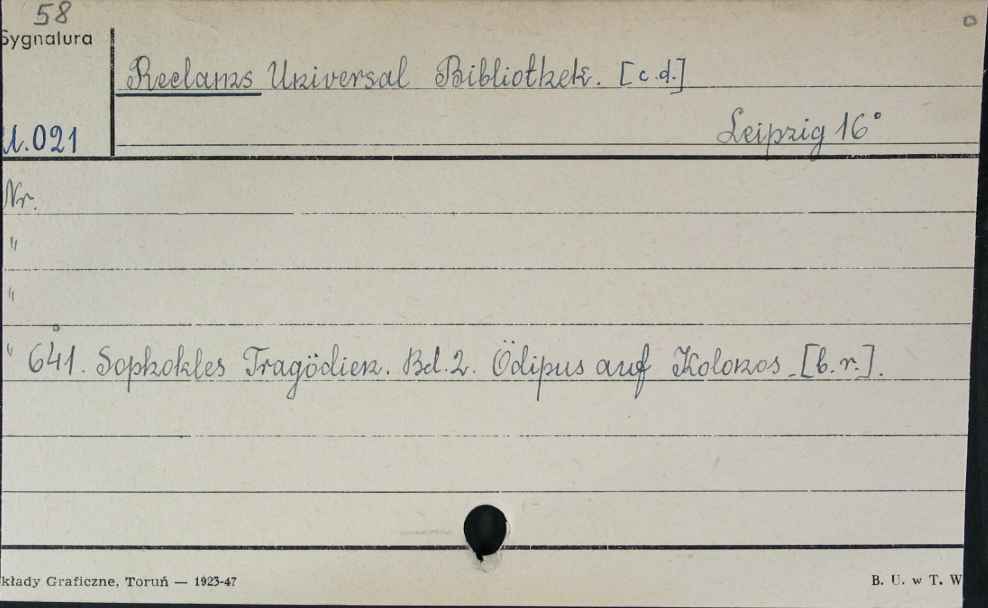 58
Sygnatura
Reclams Universal Bibliothek. [c.d.]
U.021
Leipzig 16°
Nr.
"
"
" 641. Sophokles Tragödien. Bd.2. Ödipus auf Kolonos [b.r.].
kłady Graficzne, Toruń — 1923-47
B. U. w T. W